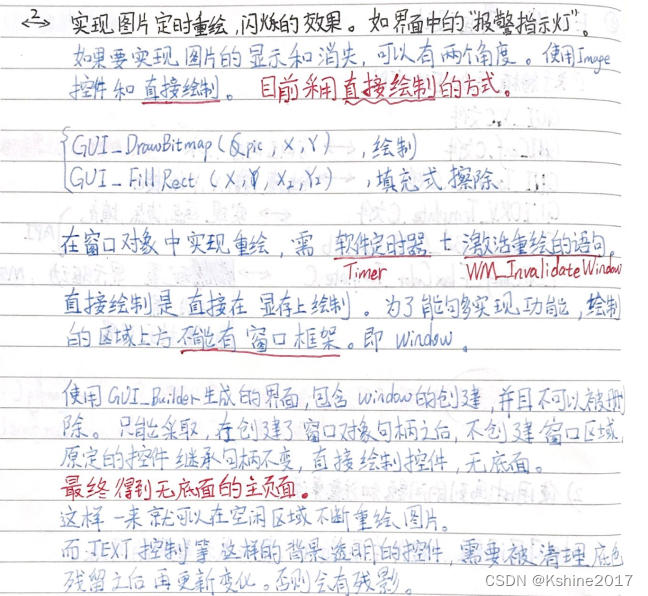 <2> 实现图片定时重绘,闪烁的效果。如界面中的“报警指示灯”。
如果要实现图片的显示和消失,可以有两个角度。使用Image
控件和直接绘制。目前采用直接绘制的方式。
GUI_DrawBitmap(&pic,X,Y),绘制
GUI_FillRect(X,Y,X2,Y2),填充式擦除.
在窗口对象中实现重绘,需 软件定时器 + 激活重绘的语句.
Timer WM_InvalidateWindow
直接绘制是直接在显存上绘制。为了能够实现功能,绘制
的区域上方不能有窗口框架。即 Window。
使用GUI_Builder生成的界面,包含window的创建,并且不可以被删
除。只能采取,在创建了窗口对象句柄之后,不创建窗口区域,
原定的控件继承句柄不变,直接绘制控件,无底面。
最终得到无底面的主页面。
这样一来就可以在空闲区域不断重绘图片。
而TEXT控制等这样的背景透明的控件,需要被清理底色
残留之后再更新变化。否则会有残影。
CSDN @Kshine2017